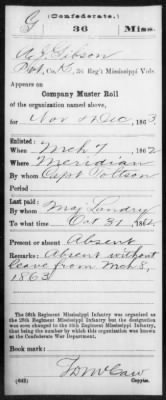 (Confederate.)
G 36 Miss.
A. J. Gibson
Co. 36 Reg't Mississippi Vols.
Appears on
Company Muster Roll
of the organization named above,
for Nov & Dec, 1863
Enlisted:
When Mch 7 1862
Where Meridian
By whom Capt
Last paid:
By whom Maj. Landry
To what time Oct 31 1862
Present or absent Absent
Remarks: Absent without
leave from Mch 5,
1863
The 36th Regiment Mississippi Infantry was organized as
the 25th Regiment Mississippi Infantry but the designation
was soon changed to the 36th Regiment Mississippi Infantry,
that being the number by which this organization was known
at the Confederate War Department.
Book mark:
(642) Copyist.